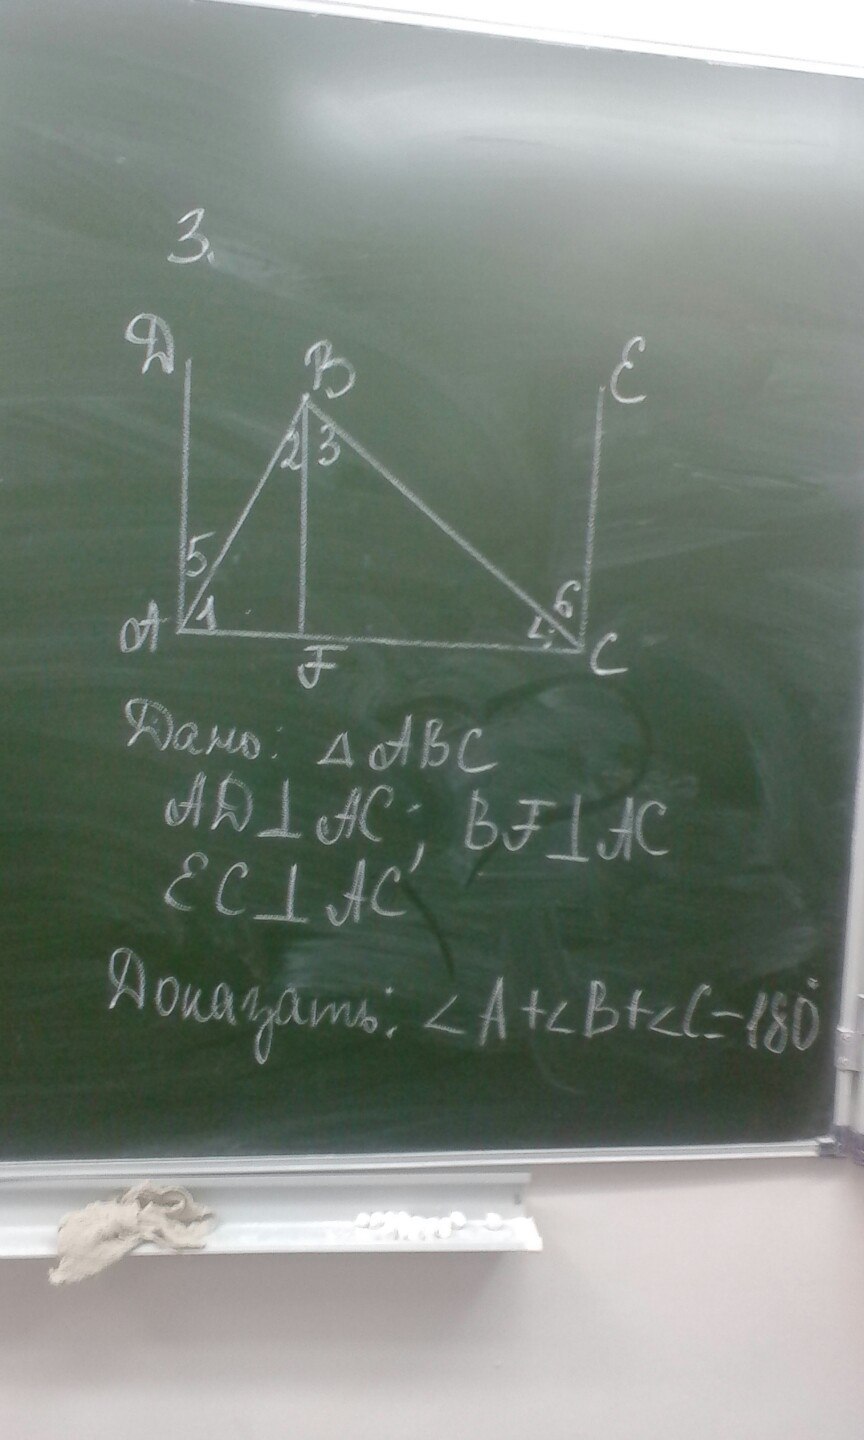 3.
Д
B
E
2 3
5
6
A
1
4
F
C
Дано: △ABC
AD⊥AC; BF⊥AC
EC⊥AC
Доказать: ∠A+∠B+∠C=180°